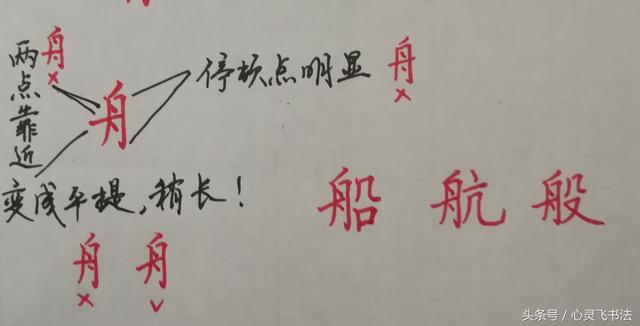 两点靠近
舟
×
舟
停顿点明显
舟
×
变成平提，稍长！
船 航 般
舟 舟
× ✓
头条号／心灵飞书法